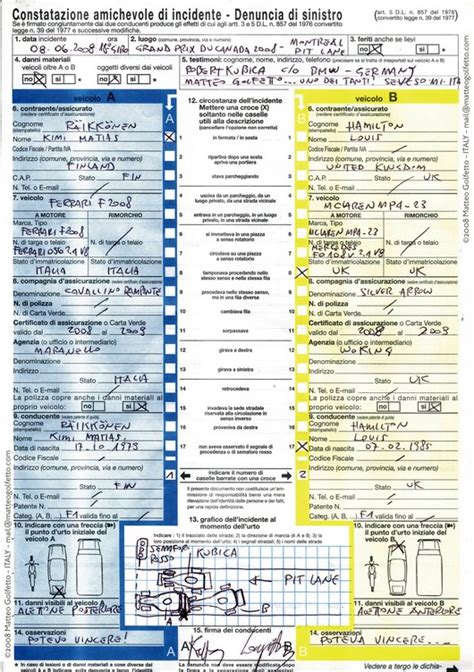 Constatazione amichevole di incidente - Denuncia di sinistro
(art. 5 D.L. n. 857 del 1976
convertito legge n. 39 del 1977)
Se è firmato congiuntamente dai due conducenti produce gli effetti di cui agli artt. 3 e 5 D.L. n. 857 del 1976 convertito
legge n. 39 del 1977 e successive modifiche.
1. data incidente ora 2. luogo (comune, provincia, via e numero)
3. feriti anche se lievi
08.06.2008 GRAND PRIX DU CANADA 2008 - MONTREAL
PIT LANE
no si
4. danni materiali
veicoli oltre A o B oggetti diversi dai veicoli
no si no si
5. testimoni: cognome, nome, indirizzo, telefono (precisare se si tratta di trasportati sul veicolo A o B)
ROBERT KUBICA C/O BMW - GERMANY
MATTEO GOLFETTO... UNO DEI TANTI! SEVESO MI-ITA
veicolo A
6. contraente/assicurato
(vedere certificato d'assicurazione)
Cognome
(stampatello) RÄIKKÖNEN
Nome KIMI MATIAS
Codice Fiscale / Partita IVA
Indirizzo (comune, provincia, via e numero)
FINLAND
C.A.P. Stato FIN
N. Tel. o E-mail
7. veicolo
FERRARI F2008
A MOTORE RIMORCHIO
Marca, Tipo
FERRARI F2008
N. di targa o telaio N. di targa o telaio
Stato d'immatricolazione Stato d'immatricolazione
ITALIA ITALIA
8. compagnia d'assicurazione (vedere certificato d'assicurazione)
Denominazione CAVALLINO RAMPANTE
N. di polizza
N. di Carta Verde
Certificato di assicurazione o Carta Verde
valido dal 2008 al 2009
Agenzia (o ufficio o intermediario)
Denominazione MARANELLO
Indirizzo
Stato ITALIA
N. Tel. o E-mail
La polizza copre anche i danni materiali al
proprio veicolo: no si
9. conducente (vedere patente di guida)
Cognome
(stampatello) RÄIKKÖNEN
Nome KIMI MATIAS
Data di nascita 17.10.1979
Codice Fiscale
Indirizzo
Stato FIN
N. Tel. o E-mail
Patente N.
Categ. (A, B, ...) F1 valida fino al
10. indicare con una freccia
il punto d'urto iniziale del
veicolo A
11. danni visibili al veicolo A
ALETTONE POSTERIORE
14. osservazioni
POTEVO VINCERE!
12. circostanze dell'incidente
Mettere una croce (X)
soltanto nelle caselle
utili alla descrizione
(cancellare l'opzione non corretta)
1 in fermata / in sosta
2 ripartiva dopo una sosta
apriva una portiera
3 stava parcheggiando
4 usciva da un parcheggio, da un
luogo privato, da una strada vicinale
5 entrava in un parcheggio, in un
luogo privato, in una strada vicinale
6 si immetteva in una piazza
a senso rotatorio
7 circolava su una piazza
a senso rotatorio
8 tamponava procedendo nello
stesso senso e nella stessa fila
9 procedeva nello stesso senso,
ma in una fila diversa
10 cambiava fila
11 sorpassava
12 girava a destra
13 girava a sinistra
14 retrocedeva
15 invadeva la sede stradale
riservata alla circolazione
in senso inverso
16 proveniva da destra
17 non aveva osservato il segnale di
precedenza o di semaforo rosso
1 indicare il numero di
caselle barrate con una croce 2
13. grafico dell'incidente
al momento dell'urto
SEMAFORO
ROSSO
KUBICA
PIT LANE
15. firma dei conducenti
A B
veicolo B
6. contraente/assicurato
(vedere certificato d'assicurazione)
Cognome
(stampatello) HAMILTON
Nome LOUIS
Codice Fiscale / Partita IVA
Indirizzo (comune, provincia, via e numero)
UNITED KINGDOM
C.A.P. Stato UK
N. Tel. o E-mail
7. veicolo
MCLAREN MP4-23
A MOTORE RIMORCHIO
Marca, Tipo
MCLAREN MP4-23
N. di targa o telaio N. di targa o telaio
Stato d'immatricolazione Stato d'immatricolazione
UK UK
8. compagnia d'assicurazione (vedere certificato d'assicurazione)
Denominazione SILVER ARROW
N. di polizza
N. di Carta Verde
Certificato di assicurazione o Carta Verde
valido dal 2008 al 2009
Agenzia (o ufficio o intermediario)
Denominazione WOKING
Indirizzo
Stato UK
N. Tel. o E-mail
La polizza copre anche i danni materiali al
proprio veicolo: no si
9. conducente (vedere patente di guida)
Cognome
(stampatello) HAMILTON
Nome LOUIS
Data di nascita 07.02.1985
Codice Fiscale
Indirizzo
Stato UK
N. Tel. o E-mail
Patente N.
Categ. (A, B, ...) F1 valida fino al
10. indicare con una freccia
il punto d'urto iniziale
del veicolo B
11. danni visibili al veicolo B
ALETTONE ANTERIORE
14. osservazioni
POTEVA VINCERE...
Vedere a tergo le
©2008 Matteo Golfetto - ITALY - mail@matteogolfetto.com
©2008 Matteo Golfetto - ITALY - mail@matteogolfetto.com